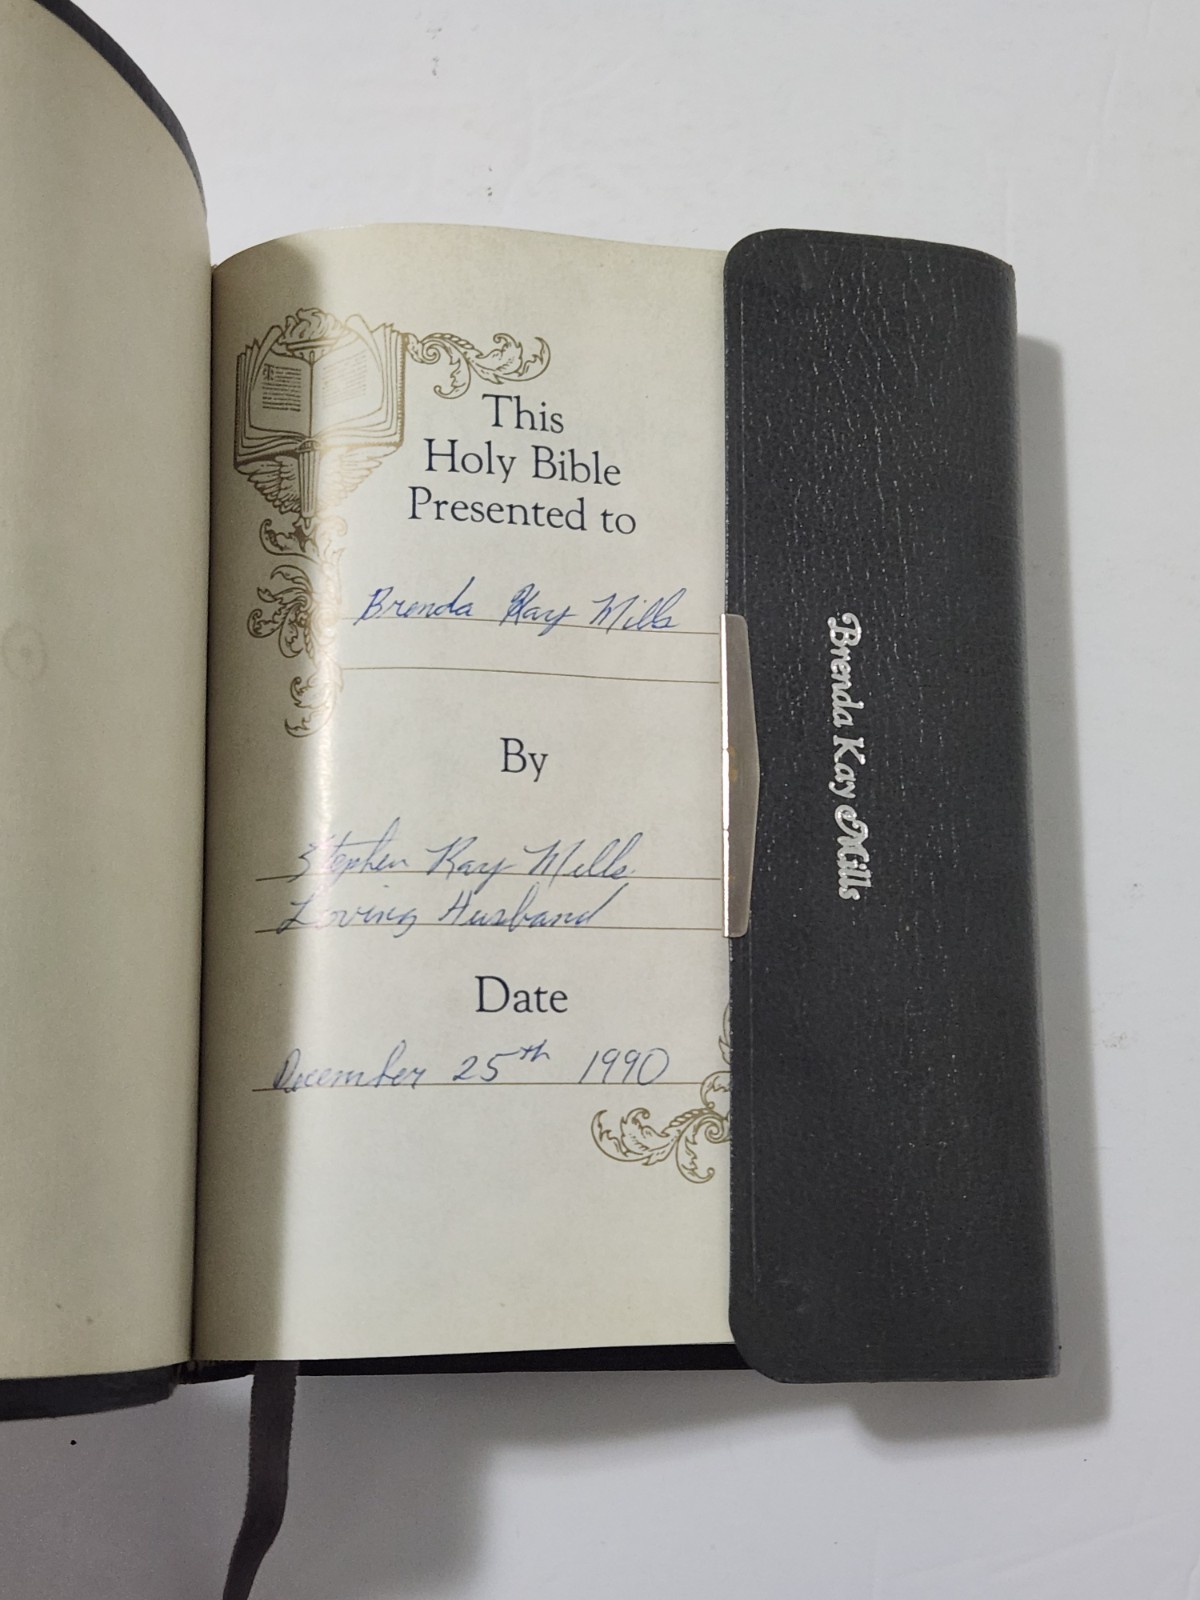 This
Holy Bible
Presented to
Brenda Kay Mills
By
Stephen Ray Mills
Loving Husband
Date
December 25th 1990
Brenda Kay Mills